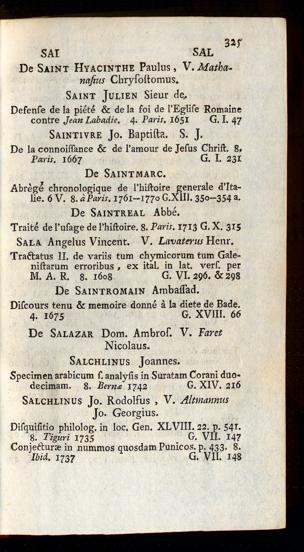 325
SAI SAL
De SAINT HYACINTHE Paulus, V. Matha-
naſius Chryſoſtomus.
SAINT JULIEN Sieur de.
Defenſe de la piété & de la foi de l'Egliſe Romaine
contre Jean Labadie. 4. Paris. 1651 G. I. 47
SAINTIVRE Jo. Baptiſta. S. J.
De la connoiſſance & de l'amour de Jeſus Chriſt. 8.
Paris. 1667 G. I. 231
De SAINTMARC.
Abrègé chronologique de l'hiſtoire generale d'Ita-
lie. 6 V. 8. à Paris. 1761—1770 G.XIII. 350—354 a.
De SAINTREAL Abbé.
Traité de l'uſage de l'hiſtoire. 8. Paris. 1713 G. X. 315
SALA Angelus Vincent. V. Lavaterus Henr.
Tractatus II. de variis tum chymicorum tum Gale-
niſtarum erroribus, ex ital. in lat. verſ. per
M. A. R. 8. 1608 G. VI. 296. & 298
De SAINTROMAIN Ambaſſad.
Diſcours tenu & memoire donné à la diete de Bade.
4. 1675 G. XVIII. 66
De SALAZAR Dom. Ambroſ. V. Faret
Nicolaus.
SALCHLINUS Joannes.
Specimen arabicum ſ. analyſis in Suratam Corani duo-
decimam. 8. Bernæ 1742 G. XIV. 216
SALCHLINUS Jo. Rodolfus, V. Altmannus
Jo. Georgius.
Diſquiſitio philolog. in loc. Gen. XLVIII. 22. p. 541.
8. Tiguri 1735 G. VII. 147
Conjecturæ in nummos quosdam Punicos. p. 433. 8.
Ibid. 1737 G. VII. 148